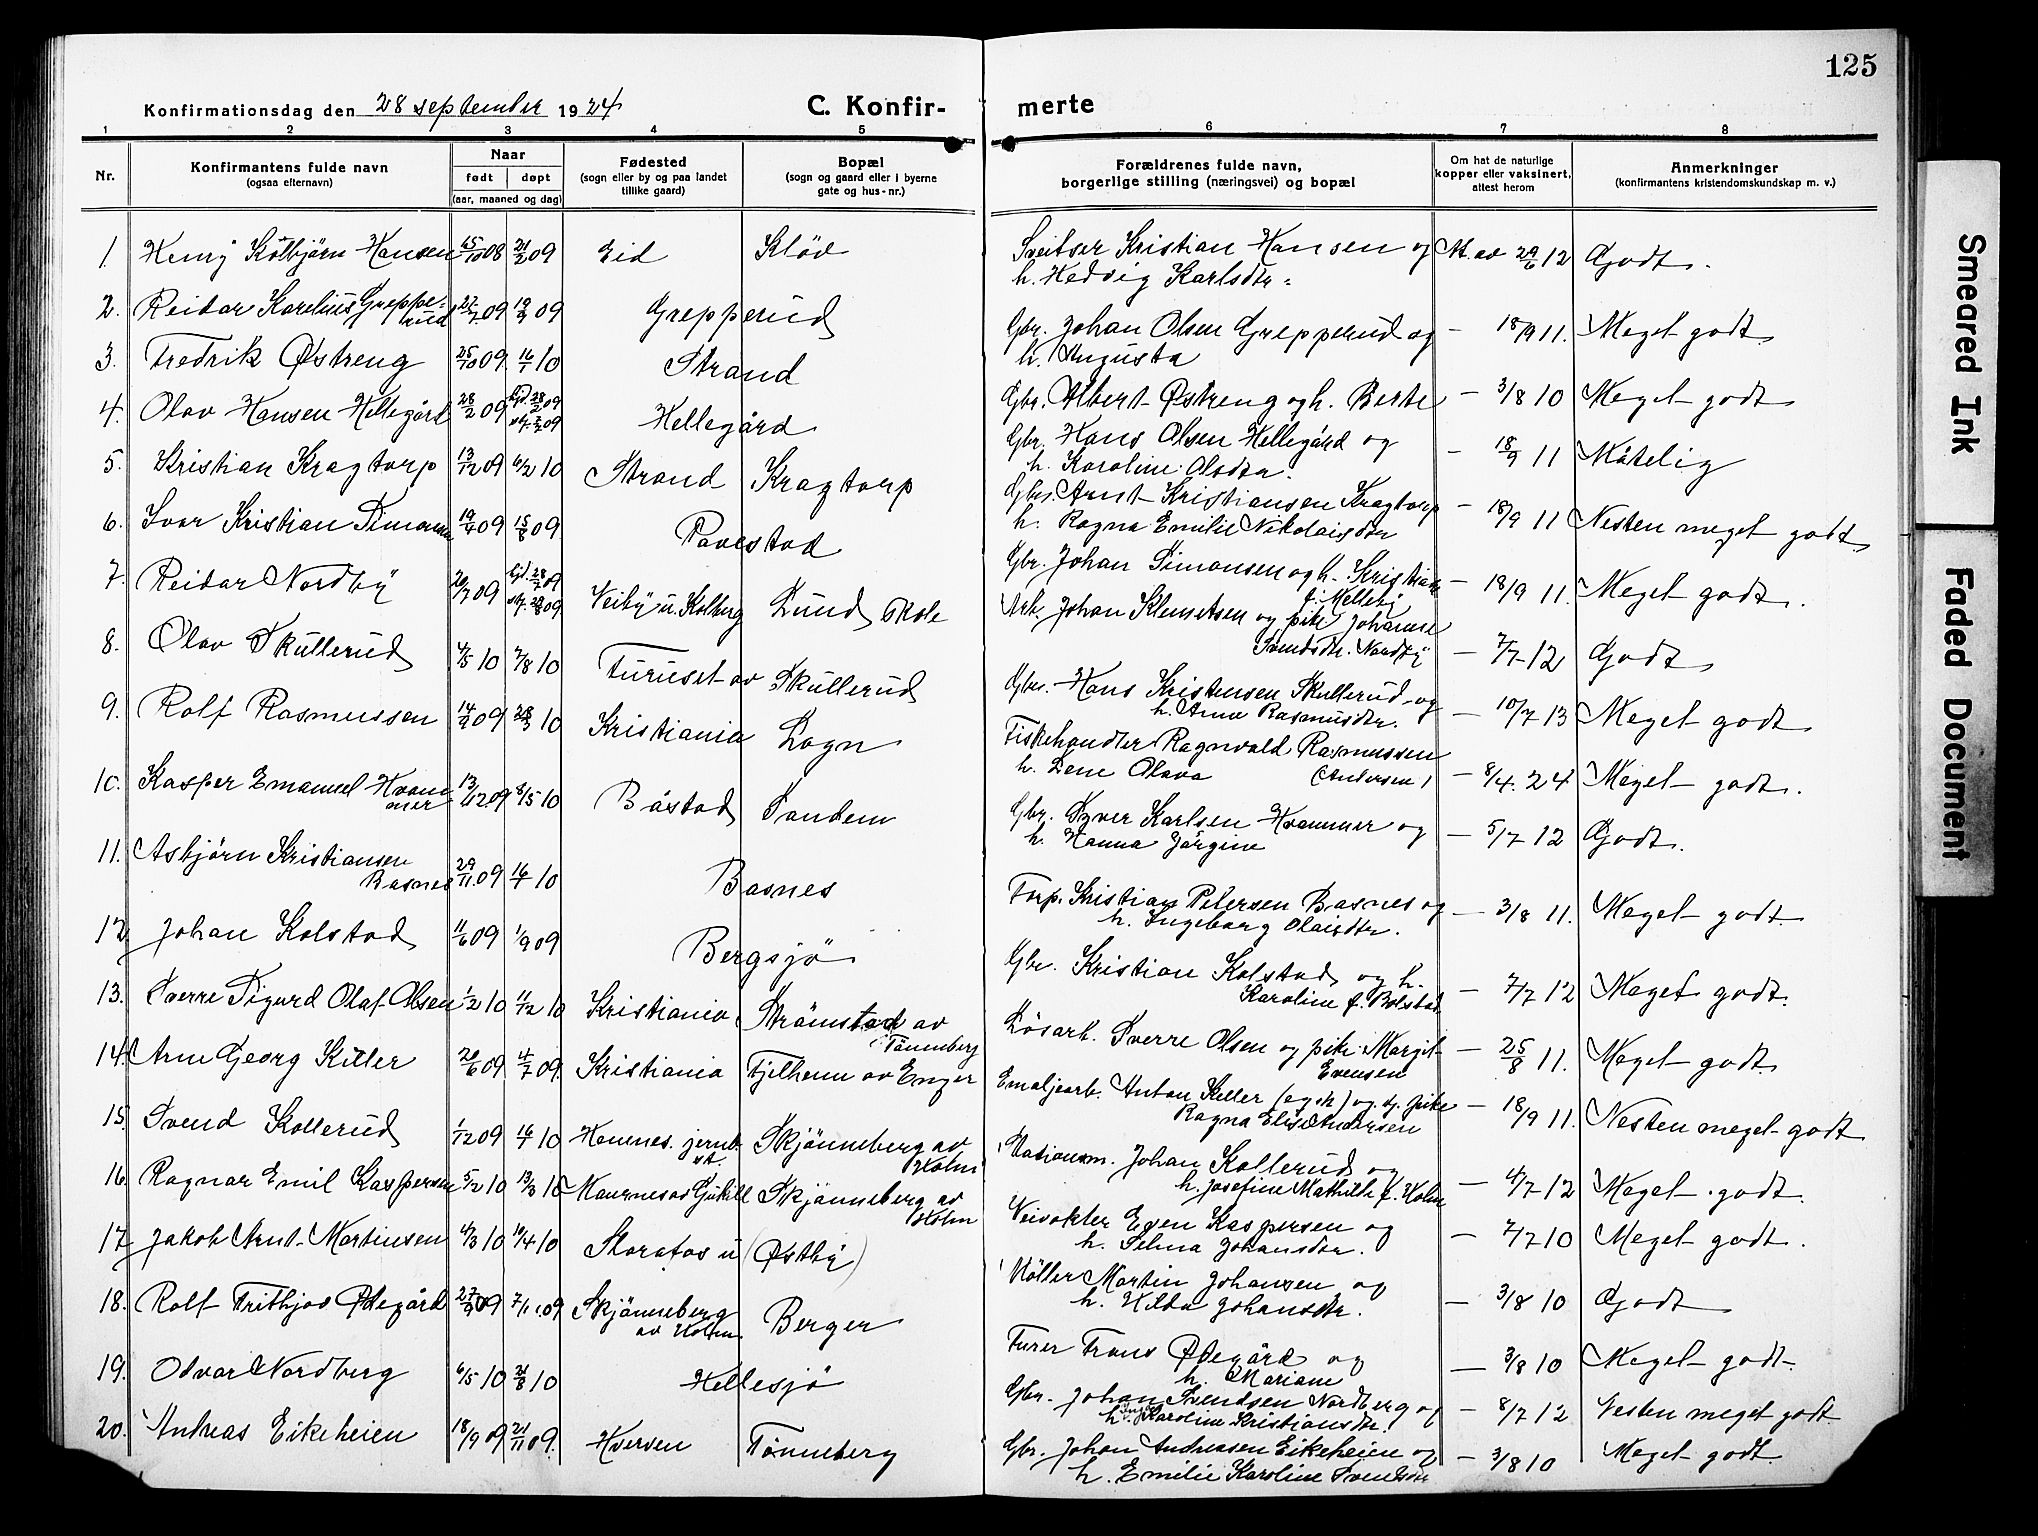 125
Konfirmationsdag den 28 september 1924 C. Konfir- merte
1 2 3 4 5 6 7 8
Nr. Konfirmantens fulde navn (ogsaa efternavn) Naar født døpt (aar, maaned og dag) Fødested (sogn eller by og paa landet tillike gaard) Bopæl (sogn og gaard eller i byerne gate og hus-nr.) Forældrenes fulde navn, borgerlige stilling (næringsvei) og bopæl Om hat de naturlige kopper eller vaksinert, attest herom Anmerkninger (konfirmantens kristendomskundskap m. v.)
1. Henry Kolbjörn Hansen 15/10 08 21/2 09 Eid Klöv Sveitser Kristian Hansen og h. Hedvig Karlsdtr. At. av 29/6 12 Godt.
2. Reidar Karelius Grepperud 27/7 09 19/9 09 Grepperud Gbr. Johan Olsen Grepperud og h. Augusta — 18/9 11. Meget godt
3. Fredrik Østreng 25/10 09 16/1 10 Strand Gbr. Albert Østreng og h. Berte — 3/8 10 Meget godt
4. Olav Hansen Hellegård 28/2 09 Hellegård Gbr. Hans Olsen Hellegård og h. Karoline Olsdtr. — 18/9 11 Måtelig
5. Kristian Kragtorp 13/12 09 6/2 10 Strand Kragtorp Gbr. Arnt Kristiansen Kragtorp h. Ragna Emilie Nikolaisdtr — 18/9 11 Nesten meget godt
6. Ivar Kristian Simonsen 19/4 09 15/8 09 Pavestad Gbr. Johan Simonsen og h. Kristiane f. Melleby — 18/9 11. Meget godt.
7. Reidar Nordby 20/7 09 Veiby u. Kolberg Lund skole Arb. Johan Klemetsen og pike Johanne Svendsdtr. Nordby — 7/7 12 Godt
8. Olav Skullerud 4/5 10 7/8 10 Furuset av Skullerud Gbr. Hans Kristensen Skullerud og h. Anne Rasmusdtr. — 10/7 13 Meget godt
9. Rolf Rasmussen 14/2 09 28/3 10 Kristiania Logn Fiskehandler Ragnvald Rasmussen h. Lene Olava (Andersen) — 8/4. 24 Meget godt.
10. Kasper Emanuel Hvammer 13/12 09 8/5 10 Båstad Sandem Gbr. Syver Karlsen Hvammer og h. Hanna Jörgine — 5/7 12 Godt.
11. Asbjörn Kristiansen Basnes 29/11. 09 16/1 10 Basnes Torp. Kristian Petersen Basnes og h. Ingeborg Olaisdtr. — 3/8 11. Meget godt.
12. Johan Kolstad 11/6 09 1/9 09 Bergsjö Gbr. Kristian Kolstad og h. Karoline f. Bolstad — 7/7 12 Meget godt.
13. Sverre Sigurd Olaf Olsen 1/2 10 11/12 10 Kristiania Strömstad av Tönneberg Lösarb. Sverre Olsen og pike Margit Evensen — 25/8 11. Meget godt
14. Arne Georg Killer 20/6 09 4/7 09. Kristiania Fjelheim av Enger Emaljearb. Anton Keller (egsk) og pike Ragna Elise Andersen — 18/9 11. Nesten meget godt
15. Svend Kollerud 1/12 09 16/1 10 Hemnes. jernb. st. Skjönneberg av Holm Stationsm. Johan Kollerud og h. Josefine Mathilde f. Holm — 4/7 12 Meget godt.
16. Ragnar Emil Kaspersen 5/2 10 13/3 10 Skjönneberg av Holm Veivokter Even Kaspersen og h. Selma Johansdtr. — 7/7 10 Meget godt.
17. Jakob Arnt Martinsen 4/3 10 10/4 10 Storafos u (Østby) Möller Martin Johansen og h. Hilda Johansdtr. — 3/8 10 Godt
18. Rolf Frithjov Ødegård 27/9 09 7/11. 09 Skjönneberg av Holm Berger Furer Frans Ødegård og h. Mariane — 3/8 10 Meget godt
19. Odvar Nordberg 6/5 10 21/8 10 Hellesjö Gbr. Johan Svendsen Nordberg og h. Karoline Kristiansdtr. — 8/7 12 Nesten meget godt
20. Andreas Eikeheien 18/9 09 21/11 09. Hversen Tönneberg Gbr. Johan Andreassen Eikeheien og h. Emilie Karoline Svendsdtr — 3/8 10 Meget godt
Smeared Ink
Faded Document